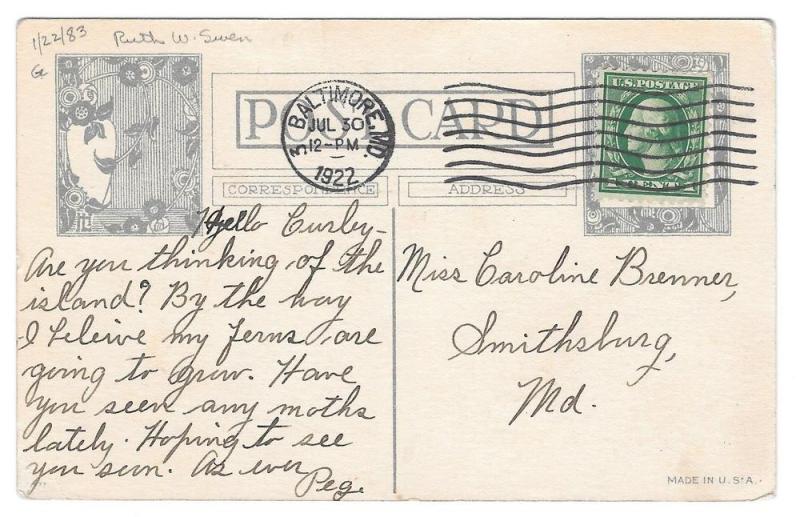 1/22/83 Ruth W. Swen
G
POST CARD
3 BALTIMORE, MD.
JUL 30
12-PM
1922
U.S. POSTAGE
CORRESPONDENCE
ADDRESS
Hello Curby-
Are you thinking of the
island? By the way
I beleive my ferns are
going to grow. Have
you seen any moths
lately. Hoping to see
you soon. As ever
Peg.
Miss Caroline Brenner,
Smithsburg,
Md.
MADE IN U.S.A.